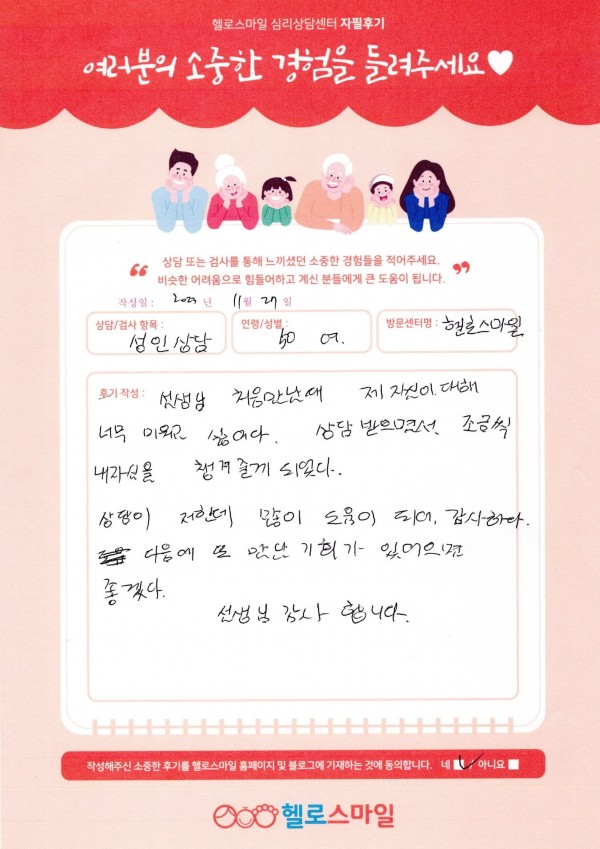 헬로스마일 심리상담센터 자필후기
여러분의 소중한 경험을 들려주세요
상담 또는 검사를 통해 느끼셨던 소중한 경험들을 적어주세요.
비슷한 어려움으로 힘들어하고 계신 분들에게 큰 도움이 됩니다.
작성일 : 2023 년 11월 27 일
상담/검사 항목 : 성인상담
연령/성별 : 50 여.
방문센터명 : 헬로스마일
후기 작성 : 선생님 처음만난때 제 자신이 대해
너무 미워고 싫어다. 상담 받으면서 조금씩
내자신을 챙겨줄게 되었다.
상담이 저한테 많이 도움이 되어, 감사하다.
다음에 또 만난 기회가 있어으면
좋겠다.
선생님 감사 합니다.
작성해주신 소중한 후기를 헬로스마일 홈페이지 및 블로그에 기재하는 것에 동의합니다. 네 아니요
헬로스마일